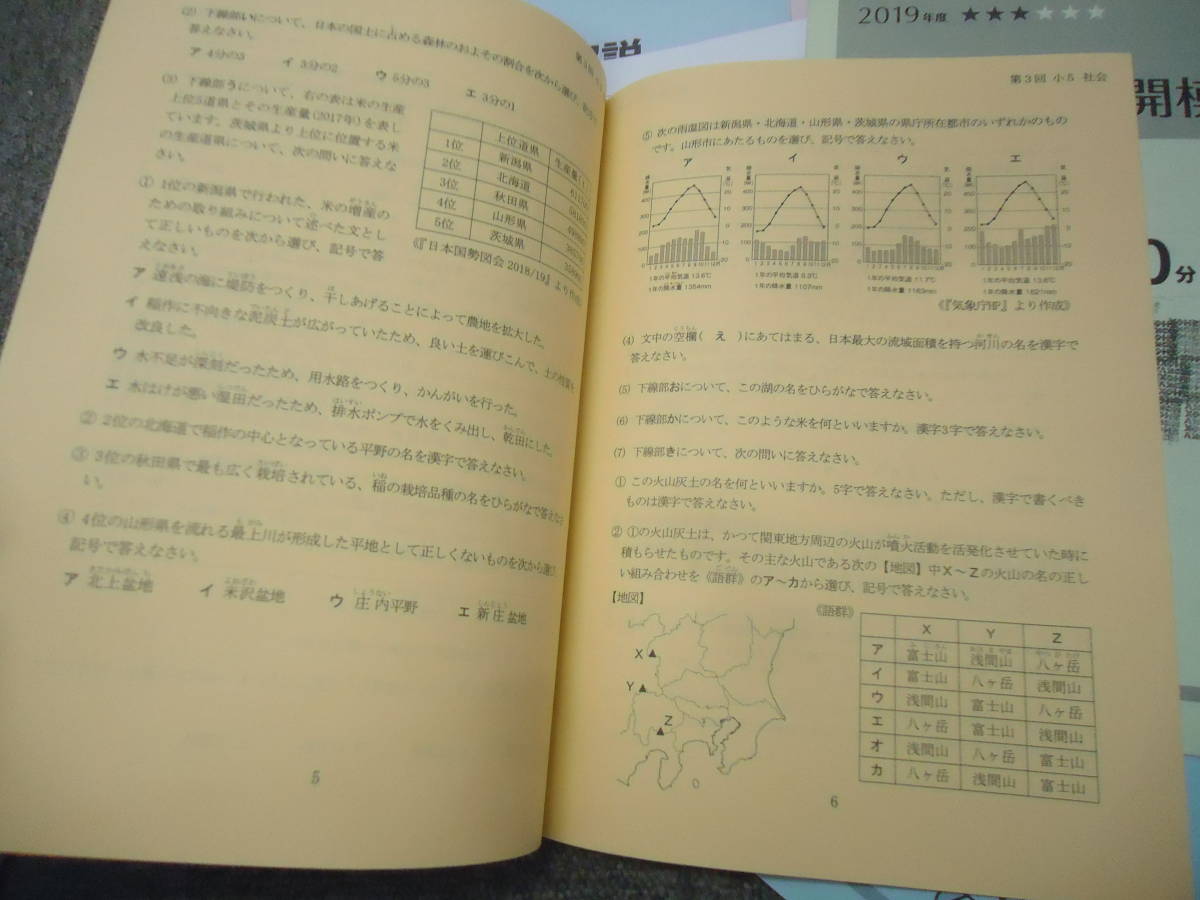 (2) 下線部いについて、日本の国土に占める森林のおよその割合を次から選び、
答えなさい。
ア 4分の3 イ 3分の2 ウ 5分の3 エ 3分の1
(3) 下線部うについて、右の表は米の生産
上位5道県とその生産量(2017年)を表し
ています。茨城県より上位に位置する米
の生産道県について、次の問いに答えな
さい。
上位道県 生産量
1位 新潟県
2位 北海道
3位 秋田県
4位 山形県
5位 茨城県
《『日本国勢図会 2018/19』より作成》
① 1位の新潟県で行われた、米の増産の
ための取り組みについて述べた文とし
て正しいものを次から選び、記号で答
えなさい。
ア 遠浅の海に堤防をつくり、干しあげることによって農地を拡大した。
イ 稲作に不向きな泥炭土が広がっていたため、良い土を運びこんで、土の性質を
改良した。
ウ 水不足が深刻だったため、用水路をつくり、かんがいを行った。
エ 水はけが悪い湿田だったため、排水ポンプで水をくみ出し、乾田にした。
② 2位の北海道で稲作の中心となっている平野の名を漢字で答えなさい。
③ 3位の秋田県で最も広く栽培されている、稲の栽培品種の名をひらがなで答えなさ
い。
④ 4位の山形県を流れる最上川が形成した平地として正しくないものを次から選び、
記号で答えなさい。
ア 北上盆地 イ 米沢盆地 ウ 庄内平野 エ 新庄盆地
5
第3回 小5 社会
⑤ 次の雨温図は新潟県・北海道・山形県・茨城県の県庁所在都市のいずれかのもの
です。山形市にあたるものを選び、記号で答えなさい。
ア イ ウ エ
1年の平均気温 13.6℃
1年の降水量 1354mm
1年の平均気温 9.3℃
1年の降水量 1107mm
1年の平均気温 11.7℃
1年の降水量 1163mm
1年の平均気温 13.6℃
1年の降水量 1821mm
《『気象庁HP』より作成》
(4) 文中の空欄( え )にあてはまる、日本最大の流域面積を持つ河川の名を漢字で
答えなさい。
(5) 下線部おについて、この湖の名をひらがなで答えなさい。
(6) 下線部かについて、このような米を何といいますか。漢字3字で答えなさい。
(7) 下線部きについて、次の問いに答えなさい。
① この火山灰土の名を何といいますか。5字で答えなさい。ただし、漢字で書くべき
ものは漢字で答えなさい。
② ①の火山灰土は、かつて関東地方周辺の火山が噴火活動を活発化させていた時に
積もらせたものです。その主な火山である次の【地図】中X～Zの火山の名の正し
い組み合わせを《語群》のア～カから選び、記号で答えなさい。
【地図】
X
Y
Z
《語群》
X Y Z
ア 富士山 浅間山 八ヶ岳
イ 富士山 八ヶ岳 浅間山
ウ 浅間山 富士山 八ヶ岳
エ 八ヶ岳 富士山 浅間山
オ 浅間山 八ヶ岳 富士山
カ 八ヶ岳 浅間山 富士山
6
2019年度 ★★★★★★
0分